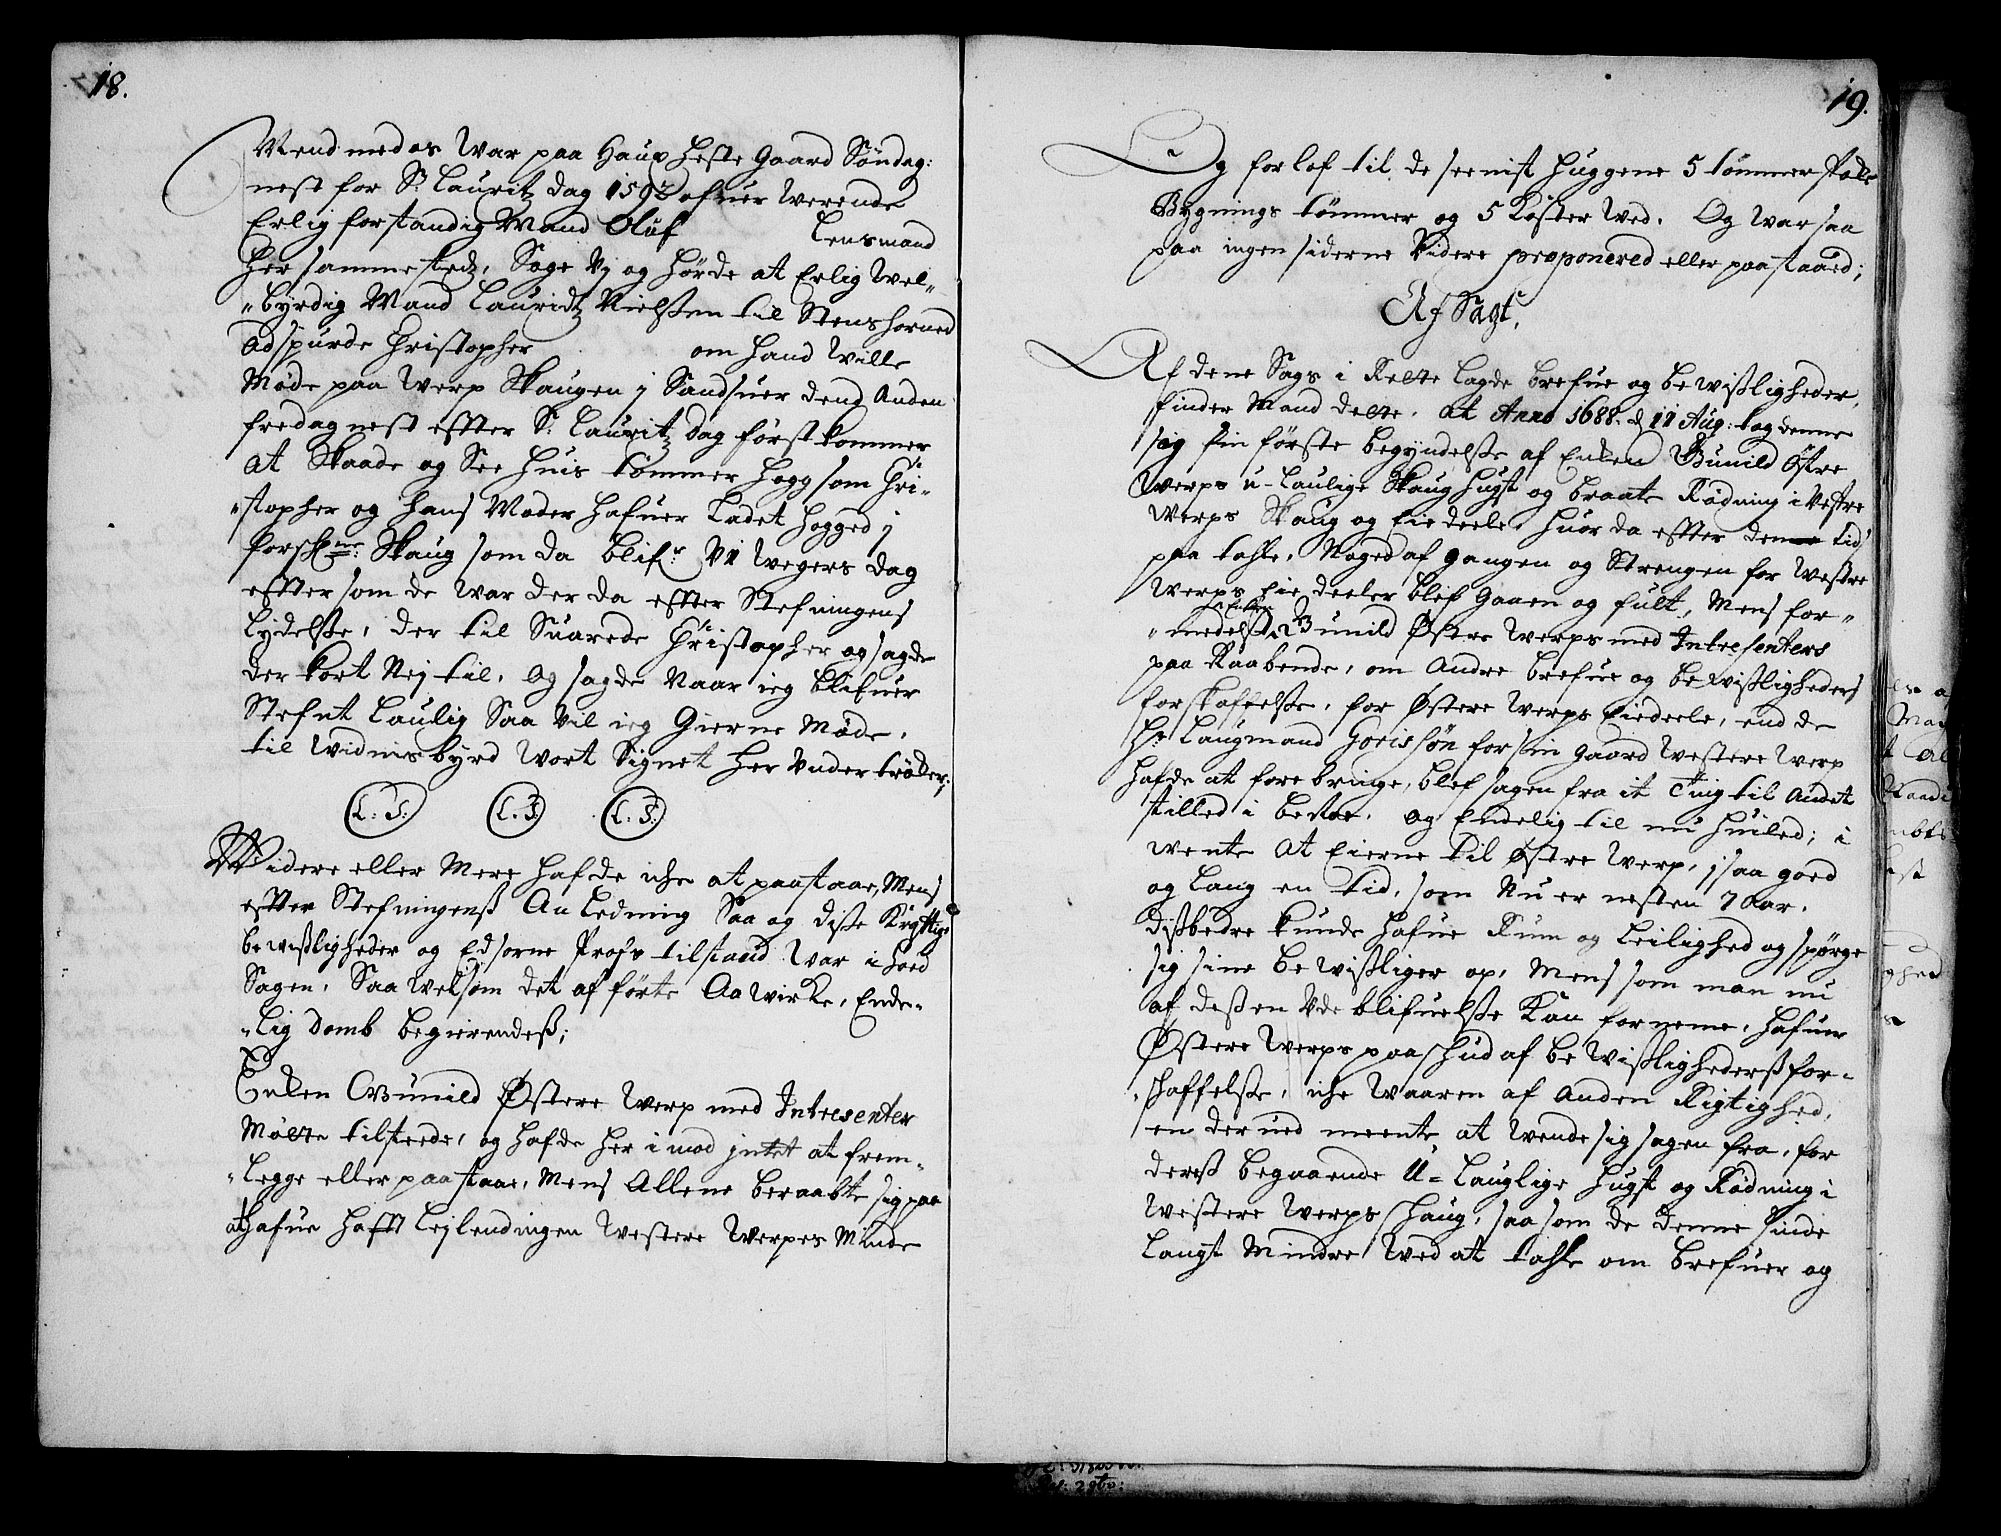 18.
Mend med os War paa Haug heste Gaard Söndag:
nest for S: Lauritz dag 1592 ofuer werende
Erlig forstandig Mand Oluf Lensmand
her sammesteds, Sage Vj og hörde at Erlig Wel-
"byrdig Mand Lauridtz Nielssen til Stenshorned
Adspurde Christopher om hand wille
Møde paa Werp Skaugen j Sandsuer dend Anden
fredag nest effter S: Lauritz dag först kommer
at Skaade og See huis tömmer hogg som Chri-
"stopher og hans Moder hafuer Ladet hogged j
forschne: Skaug som da blifr VI Wegers dag
effter som de War der da effter Stefningens
lydelsse, der til Suarede Christopher og sagde
der kort Nej til, og sagde Naar ieg blifuer
Stefnt Laulig Saa vil ieg Gierne Møde,
til Widnisbyrd Wort Signet her under tröcker;
L. S: L. S L. S:
Widere eller Mere hafde iche at paastaae, Mens
effter Stefningenss Anledning Saa og disse
bewissligheder og Edsorne Profs tilstand War i hoed
Sagen, Saa welsom det af förte Aawirke, Ende-
"lig domb begierendess;
Enken Gunild Östere Werp med Intresenter
Mötte tilstede, og hafde her i mod intet at frem-
"legge eller paastaae, Mens Allene beraabte sig paa
at hafue hafft Lejlendingen Westere Werpes Minde
19.
Og forlof til de seenist huggene 5 tömmer stole
Bygnings tömmer og 5 Laster Wed. Og war saa
paa ingen siderne Videre proponered eller paastaaed;
Af Sagt,
Af denne Sags i Rette lagde brefue og bewissligheder,
finder Mand dette, at Anno 1688. d 11 Aug: tog denne
sig sin förste begyndelsse af Enken Gunild Östre
Werps u-laulige Skaug hugst og braate Rödning i Vestre
Werps Skaug og Eiedeele, huor da effter denne tid
paa talte, Noged af gangen og Strengen for Westre
Werps Eie deeler blef Gaaen og fult, Mens for-
"medelst Enken Gunild Östre Werps med Intresenters
paa Raabende, om Andre brefue og bewissligheders
forskaffelsse, for Östere Werps Eiedeele, end de
Hr Laugmand Gorissön for sin gaard Westere Werp
hafde at forebringe, blef sagen fra it Ting til Andet
stilled i beroe, og Endelig til nu huiled; i
wente at Eierne til Östre Werp, j saa goed
og lang en tid, som Nu er nesten 7 Aar,
dissbedre kunde hafue Rum og Leilighed og spörge
sig sine bewissliger op, Mens som man nu
af dessen Udeblifuelsse kan forneme, hafuer
Östere Werps paaschud af bewisslighederss for-
schaffelsse, iche Waaren af Anden Rigtighed,
en derued meente at Wende sig sagen fra, for
derss begaaende U-lauglige hugst og Rödning i
Westere Werps Schaug, saa som de denne sinde
langt Mindre Wed at talle om brefuer og